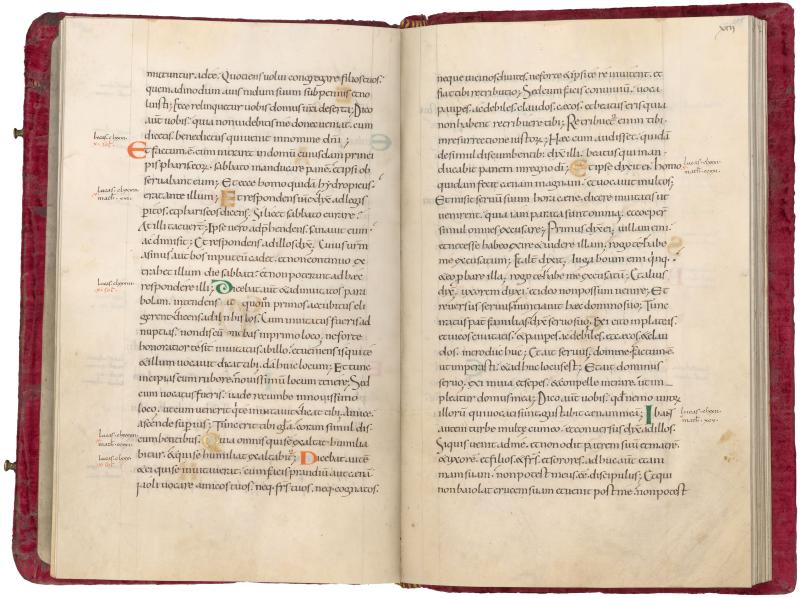 mittuntur adte. Quotiens uolui congregare filios tuos.
quemadmodum auis nidum suum sub pennis et no
luisti; Ecce relinquetur uobis domus ura deserta; Dico
aut uobis. quia non uidebitis me donec ueniat. cum
dicetis. benedictus qui uenit innomine dni;
Et factum e. cum intraret indomum cuiusdam princi
pis phariseoz. sabbato manducare pane. et ipsi ob
seruabant eum; Et ecce homo quida hydropicus
erat ante illum; Et respondens ihs dix adlegis
peritos. et phariseos dicens; Si licet sabbato curare?
At illi tacuert; Ipse uero adphendens. sanauit eum
ac dimisit; Et respondens adillos dix; Cuius urm
asinus aut bos inputeu cadet. et non continuo ex
trahet illum die sabbati? et non poterant ad haec
respondere illi; Dicebat aut et adinuitatos para
bolam. intendens quom primos accubitus eli
gerent. dicens adillos. Cum inuitatus fueris ad
nuptias. non discubas inprimo loco. ne forte
honoratior te sit inuitatus abillo. et ueniens is qui te
et illum uocauit dicat tibi. da huic locum; Et tunc
incipias cum rubore nouissimum locum tenere; Sed
cum uocatus fueris. uade recumbe innouissimo
loco. ut cum uenerit qui te inuitauit dicat tibi. Amice.
ascende supius; Tunc erit tibi gla. coram simul dis
cumbentibus. Quia omnis qui se exaltat humilia
bitur. et qui se humiliat exaltabit; Dicebat aut
et ei qui se inuitauerat. cum facis prandiu aut cena
noli uocare amicos tuos. neq frs tuos. neq cognatos.
neque uicinos diuites. ne forte et ipsi te reinuitent. et
fiat tibi retributio; Sed cum facis conuiuiu. uoca
paupes. ac debiles. claudos. cecos. et beatus eris quia
non habent retribuere tibi; Retribuet enim tibi.
inresurrectione iustoz; Haec cum audisset quida
de simul discumbentib dix illi. beatus qui man
ducabit panem inregno di; Et ipse dixit ei. homo
quidam fecit cenam magnam. et uocauit multos;
Et misit seruu suum hora cene. dicere inuitatis ut
uenirent. quia iam parata sunt omnia. et coeper
simul omnes excusare; Primus dixit ei. uillam emi.
et necesse habeo exire et uidere illam; rogo te habe
me excusatum; Et alt dixit; Iuga boum emi qnq.
et eo pbare illa. rogo te habe me excusatu; Et alius
dix. uxorem duxi. et ideo non possum uenire; Et
reuersus seruus nunciauit haec domno suo; Tunc
iratus pat familias dix seruo suo. Exi cito inplateas.
et uicos ciuitatis. et paupes. ac debiles. et cecos et clau
dos. introduc huc; Et ait seruus. domine factum e
ut imperasti. et adhuc locus est; Et ait dominus
seruo; exi inuias et sepes. et compelle intrare. ut im
pleatur domus mea; Dico aut uobis. qd nemo uiroz
illoru qui uocati sunt gustabit cena mea; Ibant
autem turbe multe cum eo. et conuersus dix adillos.
Si quis uenit adme. et non odit patrem suu et matre.
et uxore. et filios. et frs. et sorores. ad huc aut et ani
mam suam. non potest meus ee discipulus; Et qui
non baiolat crucem suam et uenit post me. non potest